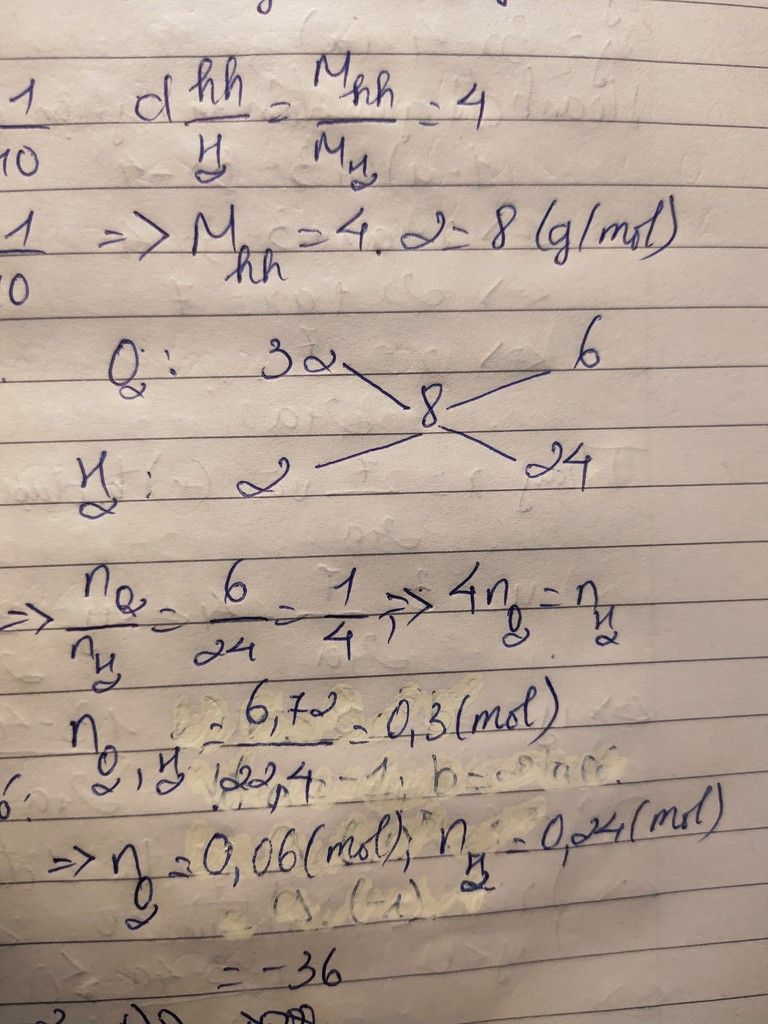 1/10 d hh/H₂ = M_hh/M_H₂ = 4
1/10 => M_hh = 4. 2 = 8 (g/mol)
O₂: 32 6
8
H₂: 2 24
=> n_O₂/n_H₂ = 6/24 = 1/4, => 4n_O₂ = n_H₂
n_O₂,H₂ = 6,72/22,4 = 0,3 (mol)
6:
=> n_O₂ = 0,06 (mol); n_H₂ = 0,24 (mol)
= -36